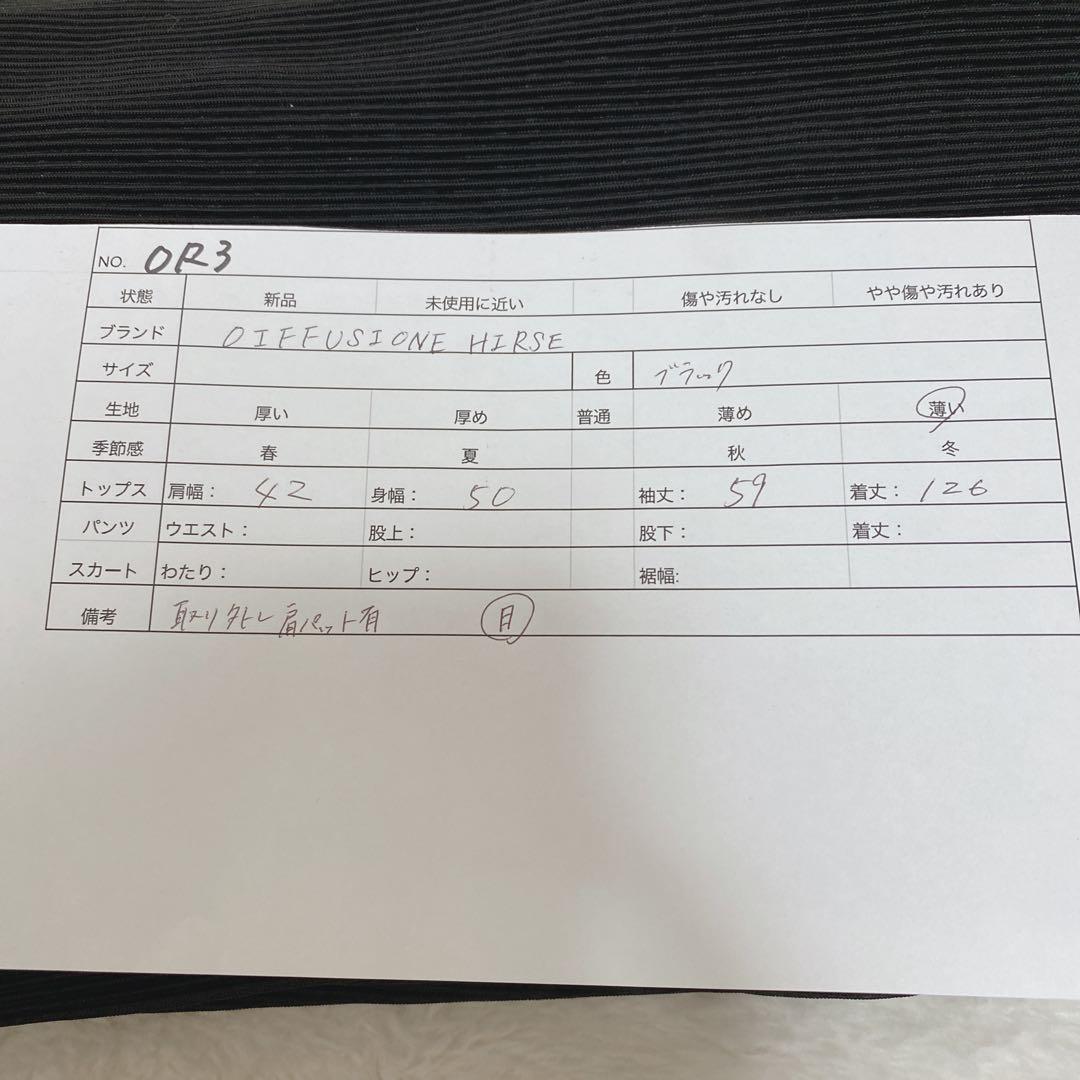 NO. OR3
状態 新品 未使用に近い 傷や汚れなし やや傷や汚れあり
ブランド DIFFUSIONE HIRSE
サイズ 色 ブラック
生地 厚い 厚め 普通 薄め 薄い
季節感 春 夏 秋 冬
トップス 肩幅： 42 身幅： 50 袖丈： 59 着丈： 126
パンツ ウエスト： 股上： 股下： 着丈：
スカート わたり： ヒップ： 裾幅:
備考 取り外し肩パット有 日